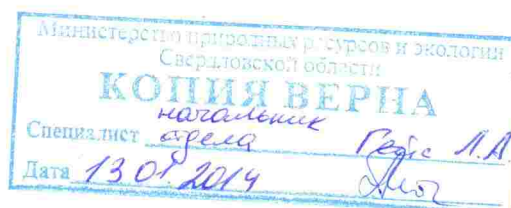 Министерство природных ресурсов и экологии
Свердловской области
КОПИЯ ВЕРНА
начальник
Специалист отдела Л.А.
Дата 13 01 2014